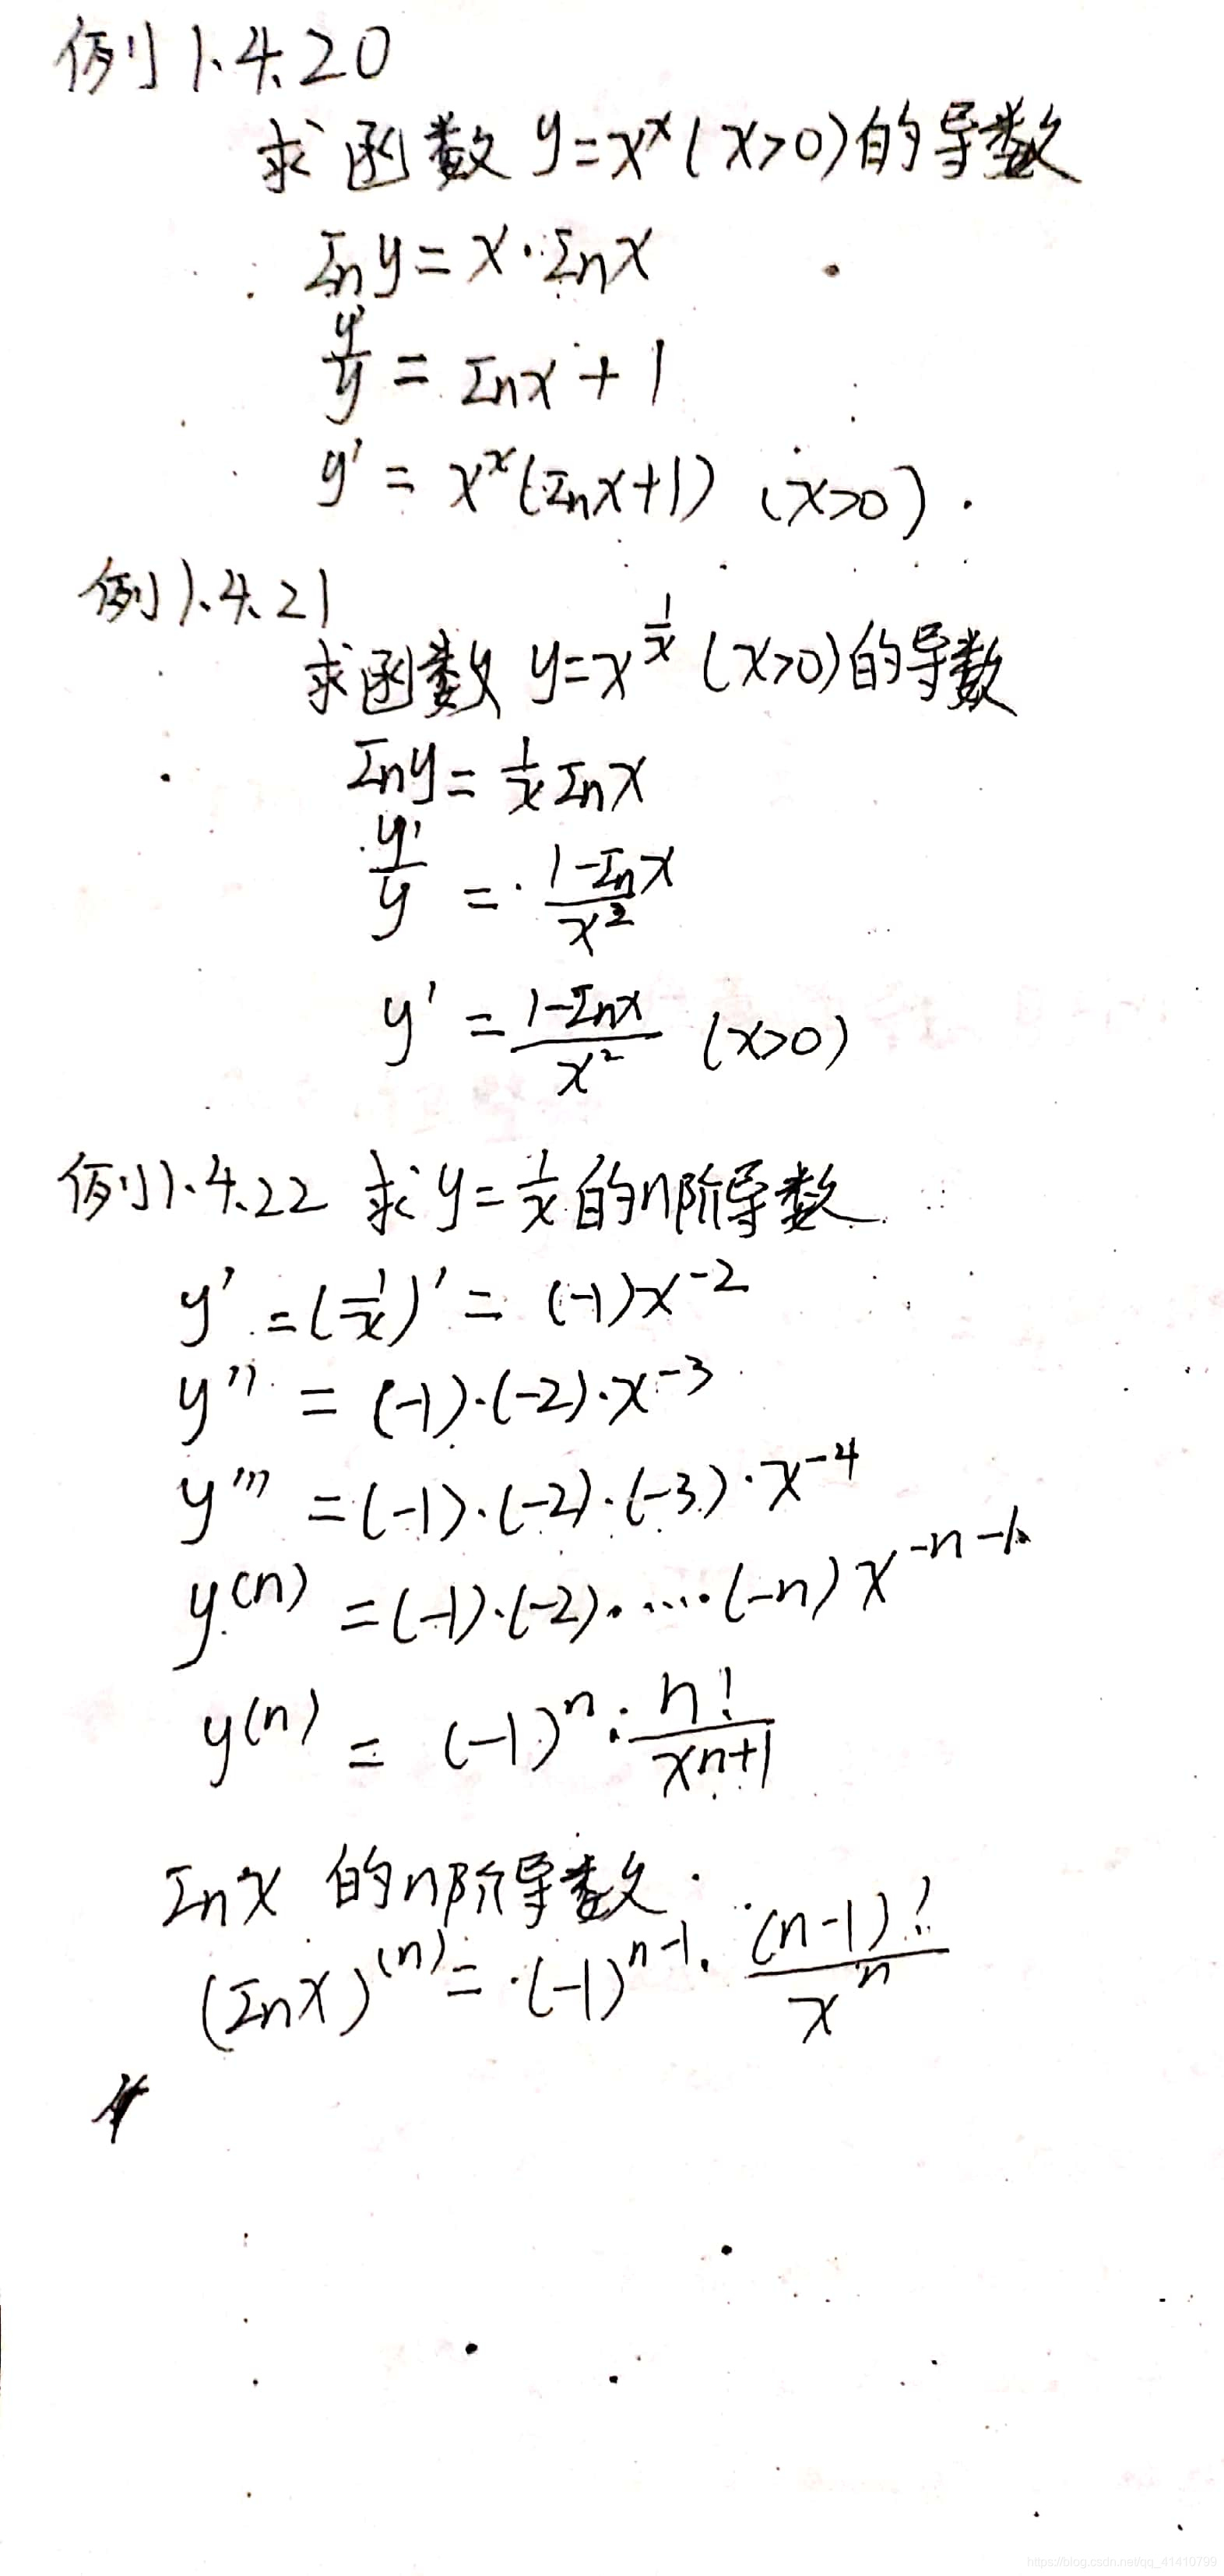 例1.4.20
求函数 y=x^x (x>0)的导数
In y = x·In x
y'/y = In x + 1
y' = x^x(In x+1) (x>0).
例1.4.21
求函数 y=x^(1/x) (x>0)的导数
In y = 1/x In x
y'/y = (1-In x)/x²
y' = (1-In x)/x² (x>0)
例1.4.22 求 y=1/x 的n阶导数
y' = (1/x)' = (-1)x^-2
y'' = (-1)·(-2)·x^-3
y''' = (-1)·(-2)·(-3)·x^-4
y^(n) = (-1)·(-2)·····(-n) x^-n-1
y^(n) = (-1)^n · n!/x^n+1
In x 的n阶导数
(In x)^(n) = (-1)^n-1 · (n-1)!/x^n
https://blog.csdn.net/qq_41410799